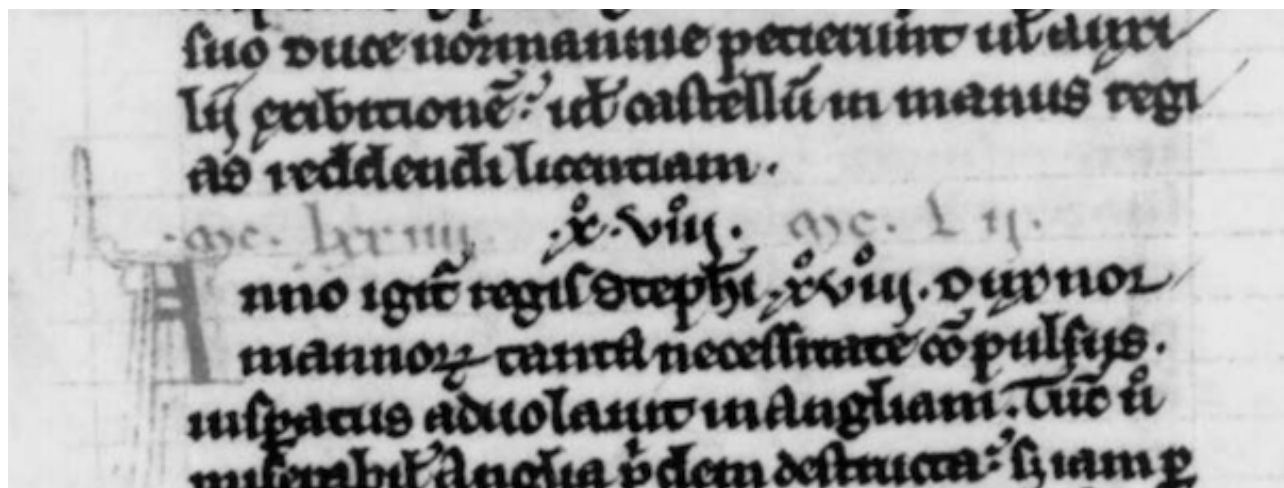 suo duce normannie petierunt ul̃ auxi
lij exibitionẽ: ul̃ castellũ in manus regi
as reddendi licentiam.
.mc. lxxiiii. .x̊.viij̊. mc. L ij.
Anno igit̃ regis Stephĩ .x̊viij̊. dux nor
mannoꝝ tanta necessitate cõpulsus.
insꝑatus aduolauit in Angliam. Tũc ů
miserabil̃ Anglia p̃dem destructa: sꝫ iam ꝑ